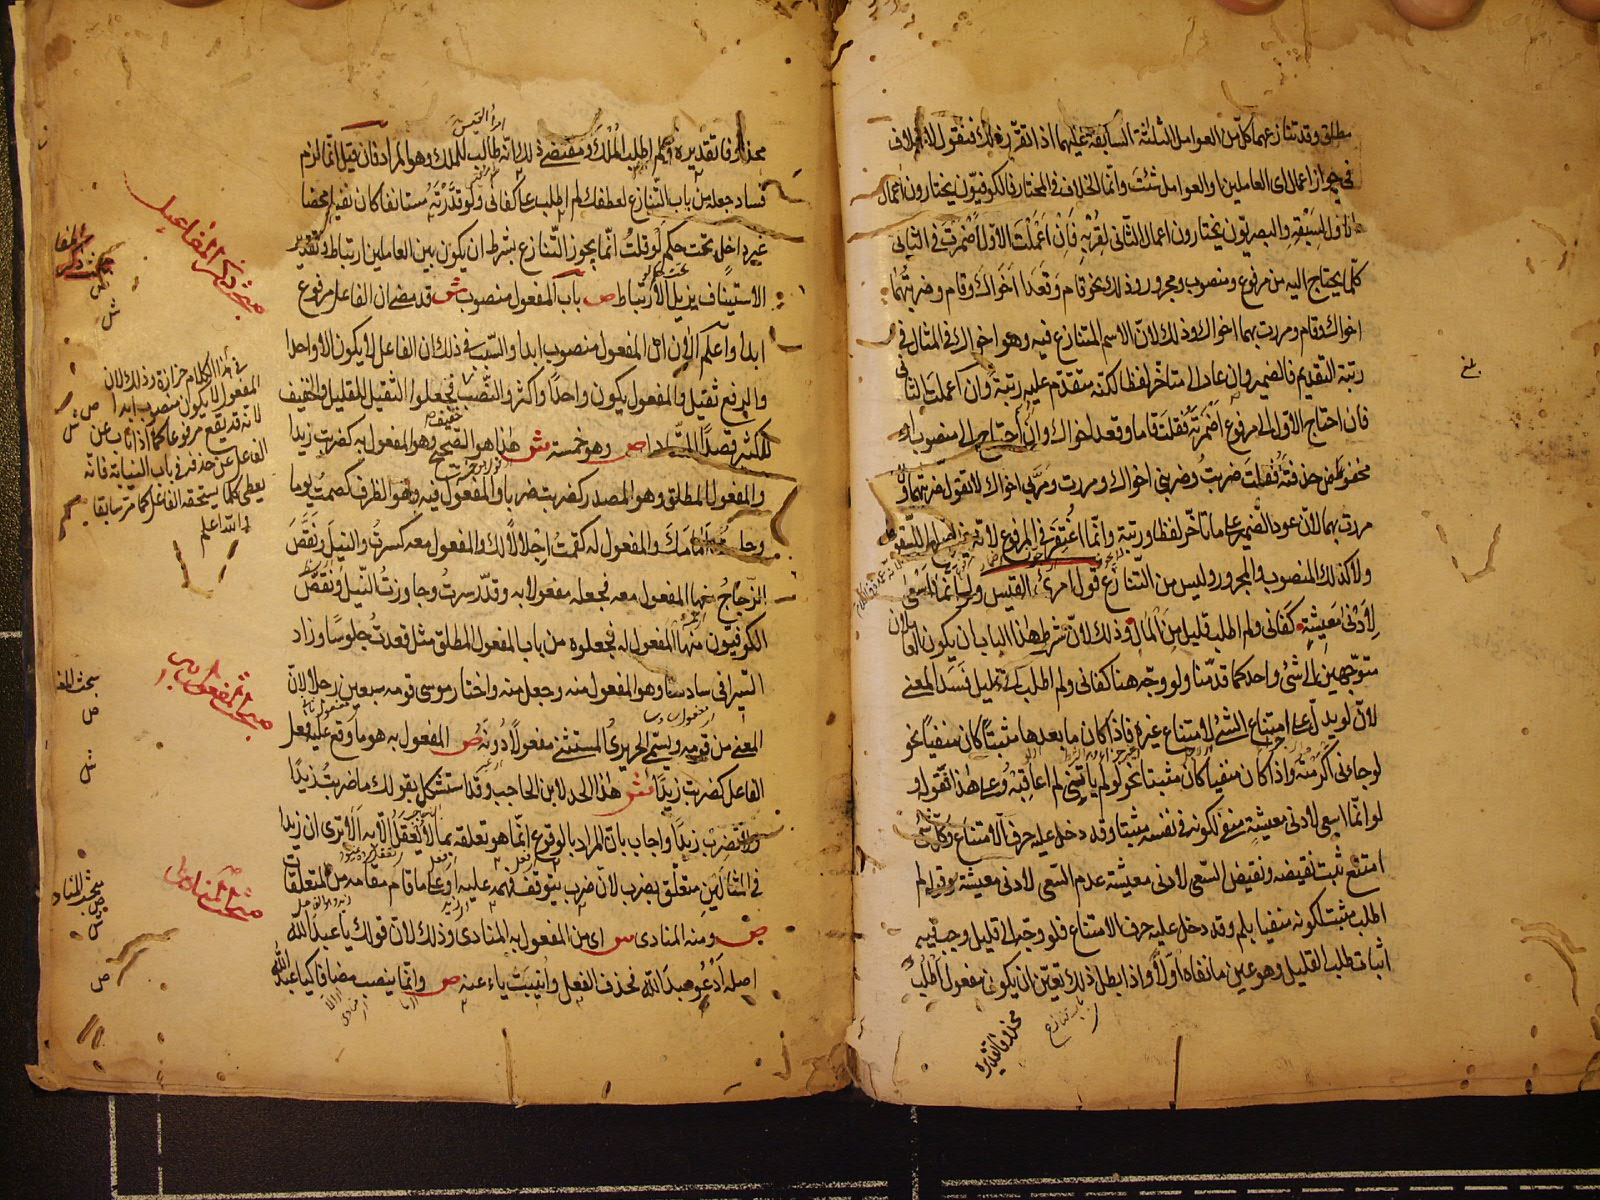 مطلق وقد تنازعهما كل من العوامل الثلاثة السابقة عليهما اذا تقرر ذلك فنقول لا خلاف
في جواز اعمال اى العاملين او العوامل شئت وانما الخلاف في المختار فالكوفيون يختارون اعمال
الاول لسبقه والبصريون يختارون اعمال الثاني لقربه فان اعملت الاول اضمرت في الثاني
كلما يحتاج اليه من مرفوع ومنصوب ومجرور وذلك نحو قام وقعدا اخواك وقام وضربتهما
اخواك وقام ومررت بهما اخواك وذلك لان الاسم المتنازع فيه وهو اخواك في المثال في
رتبة التقديم فالضمير وان عاد الى متاخر لفظا لكنه متقدم عليه رتبة وان اعملت الثاني
فان احتاج الاول الى مرفوع اضمرته فقلت قاما وقعد اخواك وان احتاج الى منصوب او
مخفوض حذفته فقلت ضربت وضربني اخواك ومررت ومر بي اخواك لا تقول ضربتهما ولا
مررت بهما لان عود الضمير على ما تاخر لفظا ورتبة وانما اغتفر في المرفوع لانه
ولا كذلك المنصوب والمجرور وليس من التنازع قول امرئ القيس ولو انما اسعى
لادنى معيشة كفاني ولم اطلب قليل من المال وذلك لان شرط هذا الباب ان يكون العاملان
متوجهين الى شئ واحد كما قدمنا ولو وجه هنا كفاني ولم اطلب الى قليل فسد المعنى
لان لو يدل على امتناع الشئ لامتناع غيره فاذا كان ما بعدها مثبتا كان منفيا نحو
لو جاءني اكرمته واذا كان منفيا كان مثبتا نحو لو لم ياتني لم اعاقبه وعلى هذا فقوله
لو انما اسعى لادنى معيشة منفي لكونه في نفسه مثبتا وقد دخل عليه حرف الامتناع وكل شئ
امتنع ثبت نقيضه ونقيض السعى لادنى معيشة عدم السعى لادنى معيشة وقوله ولم
اطلب مثبت لكونه منفيا بلم وقد دخل عليه حرف الامتناع فلو وجه الى قليل وجب فيه
اثبات طلب القليل وهو عين ما نفاه اولا واذا بطل ذلك تعين ان يكون مفعول اطلب
محذوفا تقديره
بلغ
محذوفا تقديره ولم اطلب الملك ومقتضى ذلك انه طالب للملك وهو المراد فان قيل انما لزم
امرأ القيس
فساد جعله من باب التنازع لعطفك لم اطلب على كفاني ولو قدرته مستانفا كان نفيا محضا
غير داخل تحت حكم لو قلت انما يجوز التنازع بشرط ان يكون بين العاملين ارتباط وتقدير
الاستيناف يزيل الارتباط ص باب المفعول منصوب ش قد مضى ان الفاعل مرفوع
ابدا واعلم الان ان المفعول منصوب ابدا والسبب في ذلك ان الفاعل لا يكون الا واحدا
والرفع ثقيل والمفعول يكون واحدا واكثر والنصب خفيف فجعلوا الثقيل للقليل والخفيف
للكثير قصدا للتعادل ص وهو خمسة ش هذا هو الصحيح وهو المفعول به كضربت زيدا
والمفعول المطلق وهو المصدر كضربت ضربا والمفعول فيه وهو الظرف كصمت يوما
وجلست امامك والمفعول له كقمت اجلالا لك والمفعول معه كسرت والنيل ونقص
الزجاج منها المفعول معه فجعله مفعولا به وقدر سرت وجاوزت النيل ونقص
الكوفيون منها المفعول له فجعلوه من باب المفعول المطلق مثل قعدت جلوسا وزاد
السيرافي سادسا وهو المفعول منه وجعل منه واختار موسى قومه سبعين رجلا لان
المعنى من قومه ويسمى الجوهري المستثنى مفعولا دونه ص المفعول به هو ما وقع عليه فعل
الفاعل كضربت زيدا ش هذا الحد لابن الحاجب وقد استشكل بقولك ما ضربت زيدا
ولا تضرب زيدا واجاب بان المراد بالوقوع انما هو تعلقه بما لا يعقل الا به الا ترى ان زيدا
في المثالين متعلق بضرب لان ضرب يتوقف فهمه عليه او على ما قام مقامه من المتعلقات
ص ومنه المنادى ش اى من المفعول به المنادى وذلك لان قولك يا عبد الله
اصله ادعو عبد الله فحذف الفعل وانيبت ياء عنه ص وانما ينصب مضافا كيا عبد الله
مبحث ذكر المفاعيل
في هذا الكلام حزازة وذلك لان
المفعول لا يكون منصوب ابدا
لانه قد يقع مرفوعا كما اذا ناب عن
الفاعل عن حذفه في باب النيابة فانه
يعطى كلما يستحقه الفاعل كما مر سابقا
والله اعلم
مبحث المفعول به
مبحث المنادى
ص
ش